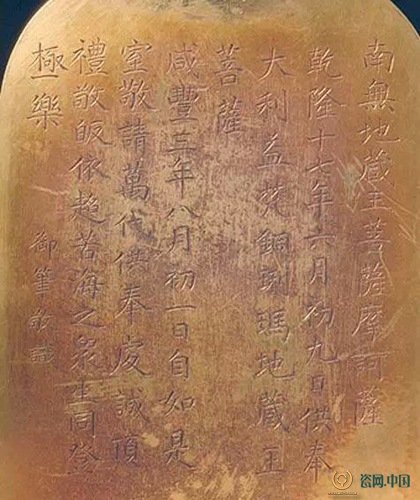 南無地藏王菩薩摩訶薩
乾隆十七年六月初九日供奉
大利益梵銅琍瑪地藏王
菩薩
咸豐三年八月初一日自如是
室敬請萬代供奉虔誠頂
禮敬皈依超苦海之眾生同登
極樂
御筆敬識
瓷网.中国